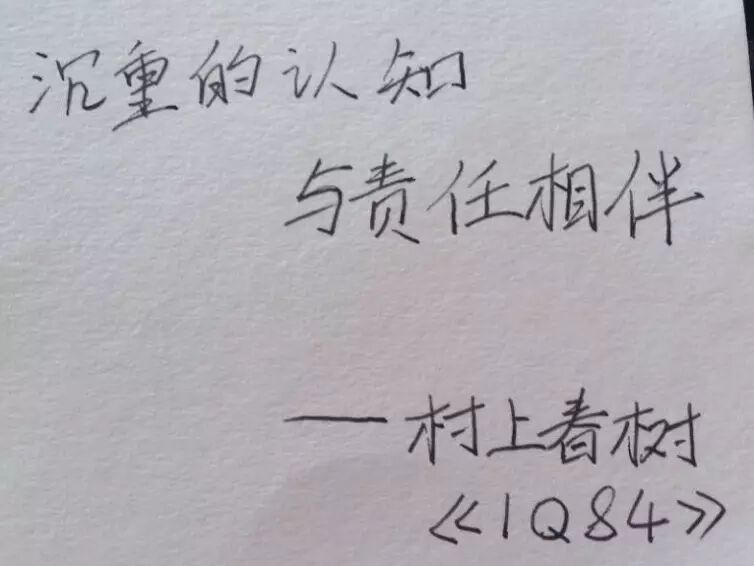 沉重的认知
与责任相伴
——村上春树
《1Q84》